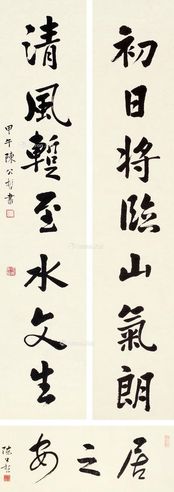 初日将臨山氣朗
清風蹔至水文生
甲午陳公哲書
居之安
陳公哲